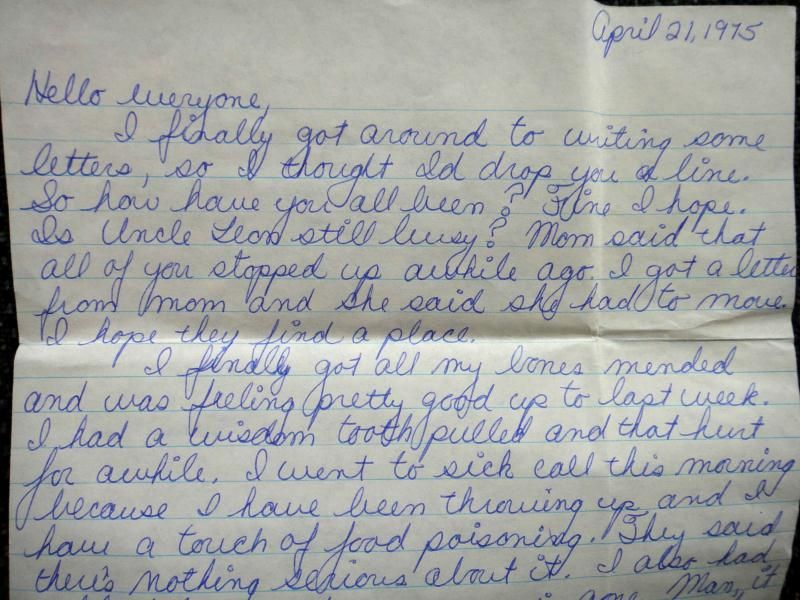 April 21, 1975
Hello everyone,
I finally got around to writing some
letters, so I thought I'd drop you a line.
So how have you all been? Fine I hope.
Is Uncle Leon still busy? Mom said that
all of you stopped up awhile ago. I got a letter
from mom and she said she had to move.
I hope they find a place.
I finally got all my bones mended
and was feeling pretty good up to last week.
I had a wisdom tooth pulled and that hurt
for awhile. I went to sick call this morning
because I have been throwing up and I
have a touch of food poisoning. They said
there's nothing serious about it. I also had
Man, it